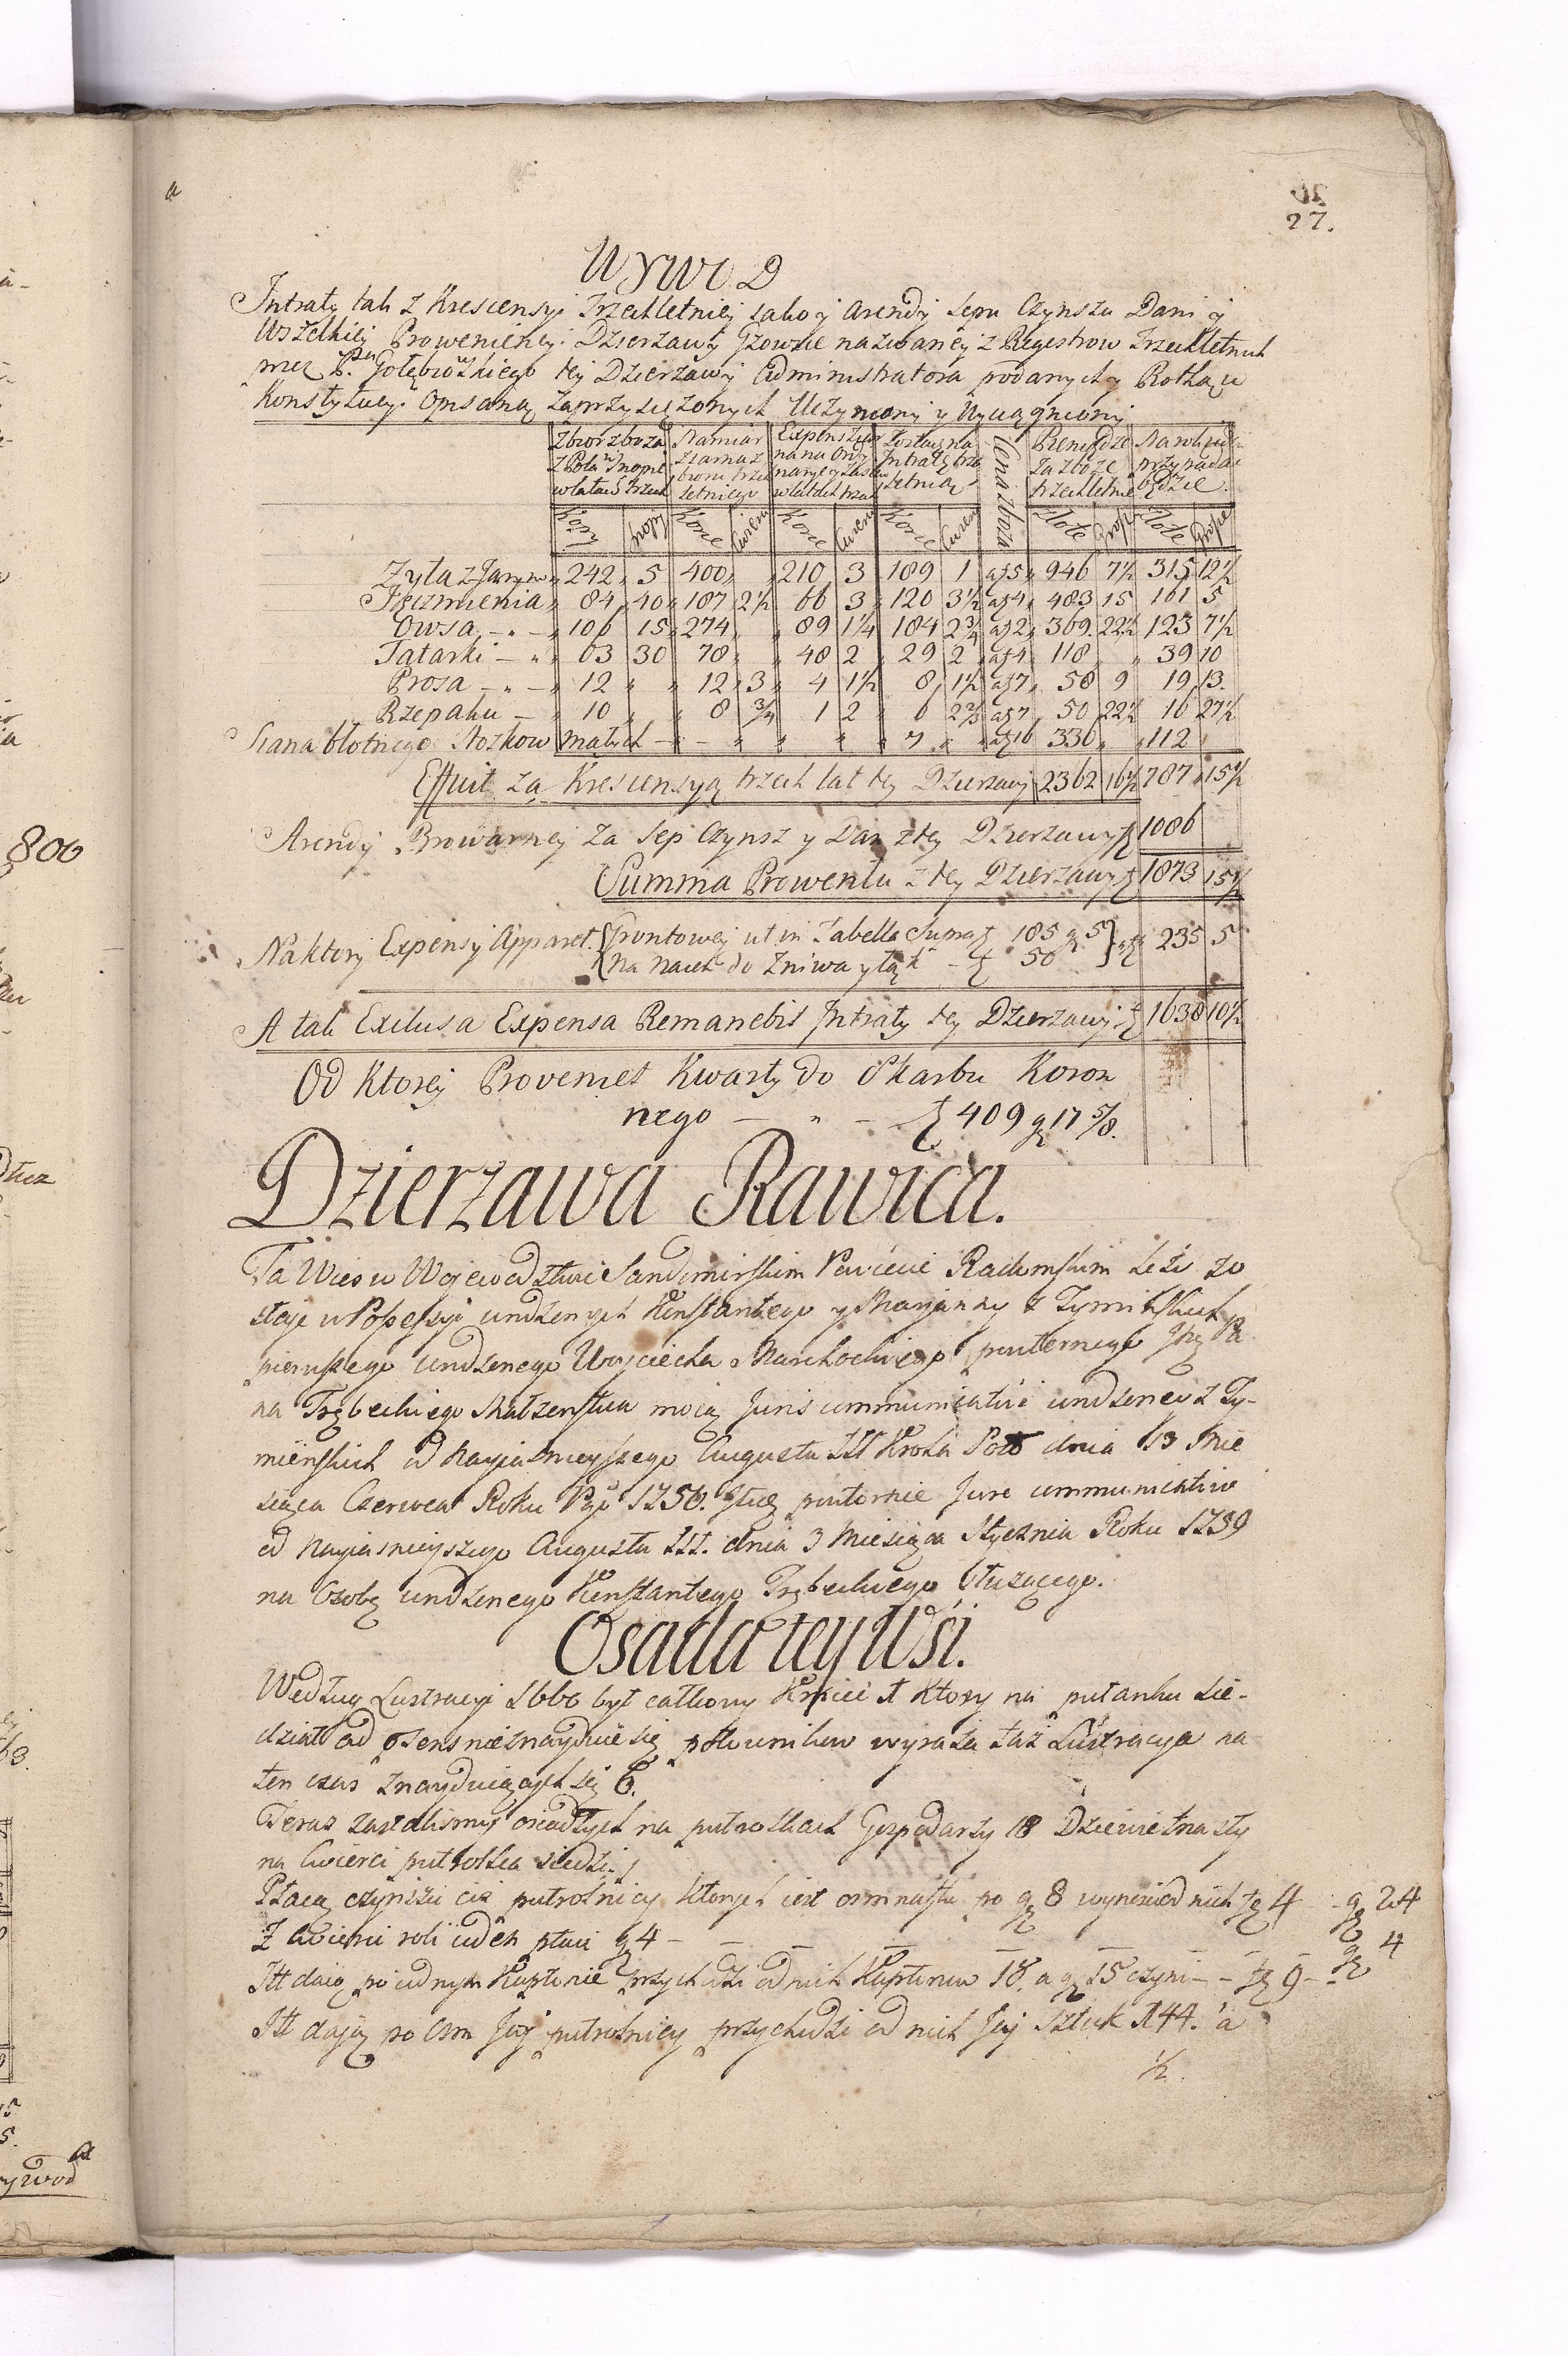 27.
Wywod
Intraty tak z Krescensyi Trzechletniey jako y Arendy Sepu Czynszu Dani y
Wszelkiey Proweniencyi Dzierzawy Gzowice nazwaney z Regestrow Trzechletnich
przez P. Gołębiowskiego tey Dzierzawy Administratora podanych y Rothą w
Konstytucyi Opisaną zaprzysiężonych Uczyniony y Wyciągniony
Zbior zboza z Pola w Snopie w latach trzech | Namiar Ziarna z zbioru trzechletniego | Expens ziarna na Ordynaryą y zasiew w latach trzech | Zostaie na Intratę trzechletnią | Cena zboza | Pieniądze za zboze trzechletnie | Na rok ieden przypadać będzie
Kopy | snopy | Korce | Cwierci | Korce | Cwierci | Korce | Cwierci | Złote | Grosze | Złote | Grosze
Zyta z Jarym 242 5 400 210 3 189 1 a f 5 946 7½ 315 12½
Jęczmienia 84 40 187 2½ 66 3 120 3½ a f 4 483 15 161 5
Owsa 106 15 274 89 1¼ 184 2¾ a f 2 369 22½ 123 7½
Tatarki 63 30 78 48 2 29 2 a f 4 118 39 10
Prosa 12 12 3 4 1½ 8 1½ a f 7 58 9 19 13
Rzepaku 10 8 ¾ 1 2 6 2⅔ a f 7 50 22½ 16 27½
Siana błotnego Stozkow małych 7 a f 16 336 112
Effluit za Krescensyą trzech lat tey Dzierzawy 2362 16½ 787 15½
Arendy Browarney za Sep Czynsz y Dan z tey Dzierzawy 1086
Summa Prowentu z tey Dzierzawy 1873 15½
Na ktory Expensy Apparet. Gruntowey ut in Tabella Supra 185 g 5
na naiem do Zniwa y łąk 50 235 5
A tak Exclusa Expensa Remanebit Intraty tey Dzierzawy 1638 10½
Od Ktorey Proveniet Kwarty do Skarbu Koron
nego 409 g 17 5/8.
Dzierzawa Rawica.
Ta Wies w Wojewodztwie Sandomirskim Powiecie Radomskim lezi zo
staje w Possessyi urodzonych Konstantego y Maryanny z Tyminskich
pierwszego urodzonego Woyciecha Marchockiego powtornego Pa
na Trębeckiego Małzenstwa mocą Juris communicativi urodzoney z Ty-
minskich od Nayiasnieyszego Augusta III Krola Pols dnia 13 Mie
siąca Czerwca Roku 1756. powtornie Jure communicativo
od Nayiasnieyszego Augusta III. dnia 3 Miesiąca Stycznia Roku 1739
na Osobę urodzonego Konstantego Trębeckiego słuzącego.
Osada tey Wsi.
Według Lustracyi 1660 był całkowy Kmieć 1 Ktory na pułanku sie-
dział ad praesens nieznayduie się połownikow wyraza taż Lustracya na
ten czas znayduiących się 6.
Teraz zastalismy osiadłych na pułrolkach Gospodarzy 18 Dziewiętnasty
na cwierci pułrolka siedzi.
Płacą czynszu ciż pułrolnicy ktorych iest osmnastu po g 8 wyniesie od nich zł 4 g 24
Z cwierci roli ieden płaci g 4 g 4
Itt daią po iednym Kapłonie przychodzi od nich Kapłonow 18 a g 15 czyni zł 9
Itt dają po Osm Jaj pułrolnicy przychodzi od nich Jaj Sztuk 144. a
½
800